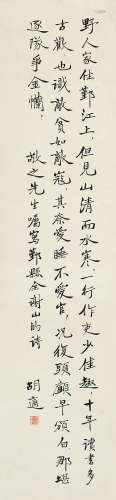 野人家住鄞江上，但見山清而水寒。一行作吏少佳趣，十年讀書多
古歡。也識敵貧如敵寇，其奈愛睡不愛官。況復頭顱早頒白，那堪
逐隊爭金襴！
敬之先生囑寫鄞縣全謝山的詩
胡適